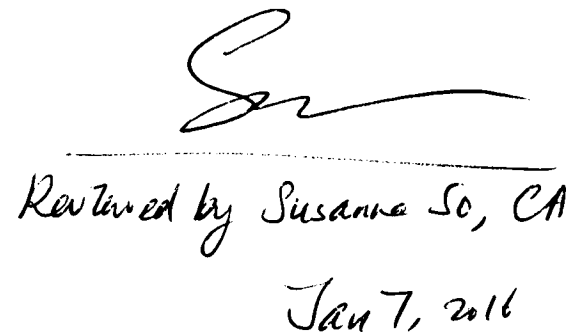 Reviewed by Susanna So, CA
Jan 7, 2016